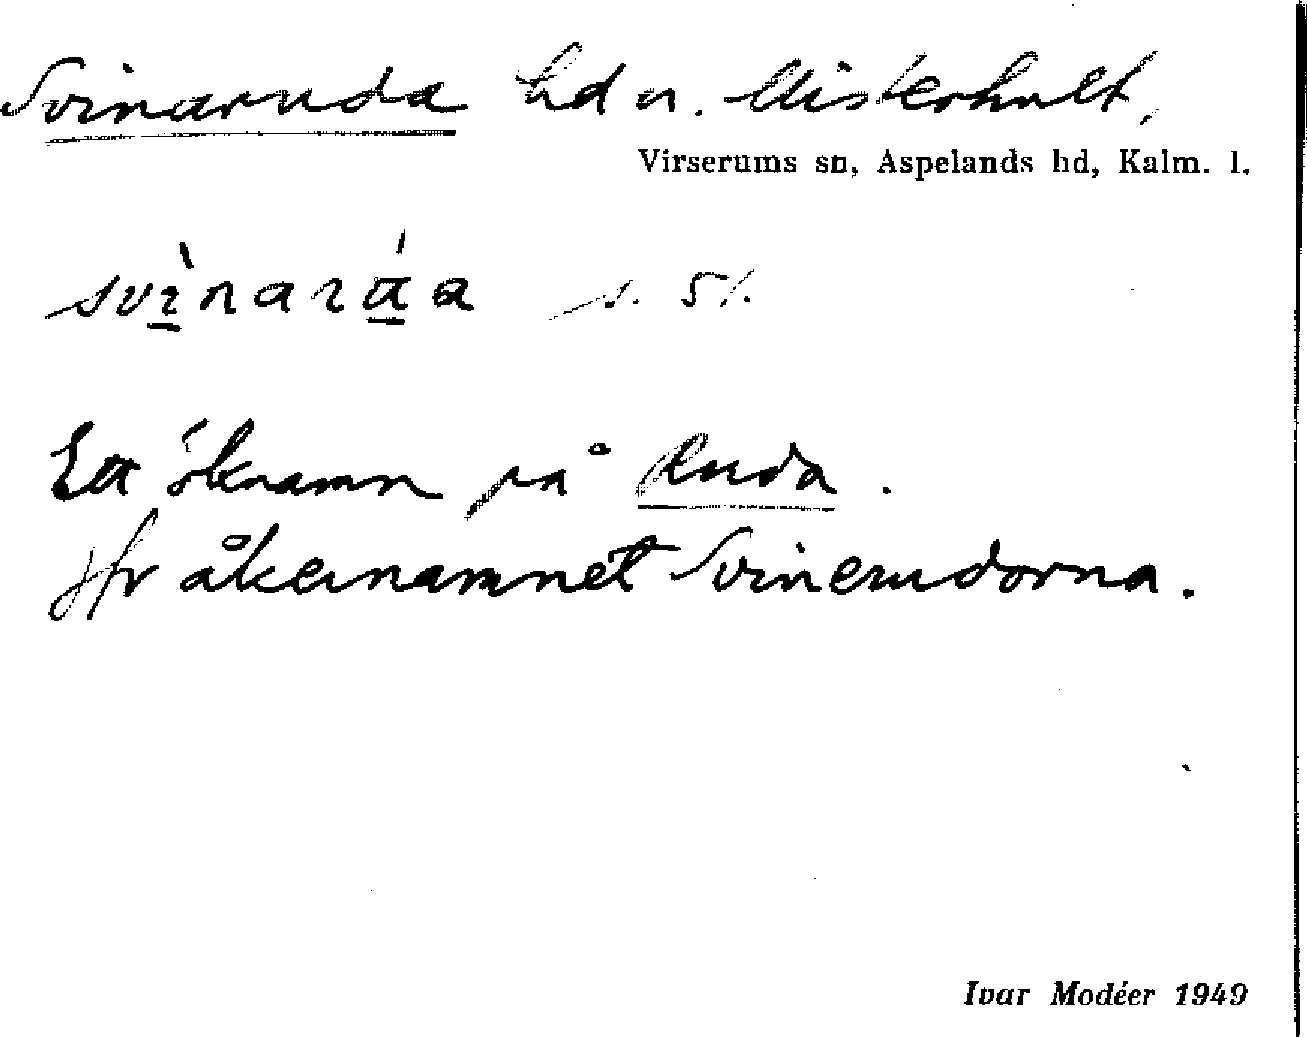 Svinaruda hd u. Misterhult,
Virserums sn, Aspelands hd, Kalm. l.
svìnaráa s. 51.
Ett öknamn på Ruda.
Jfr åkernamnet Svinerudorna.
Ivar Modéer 1949